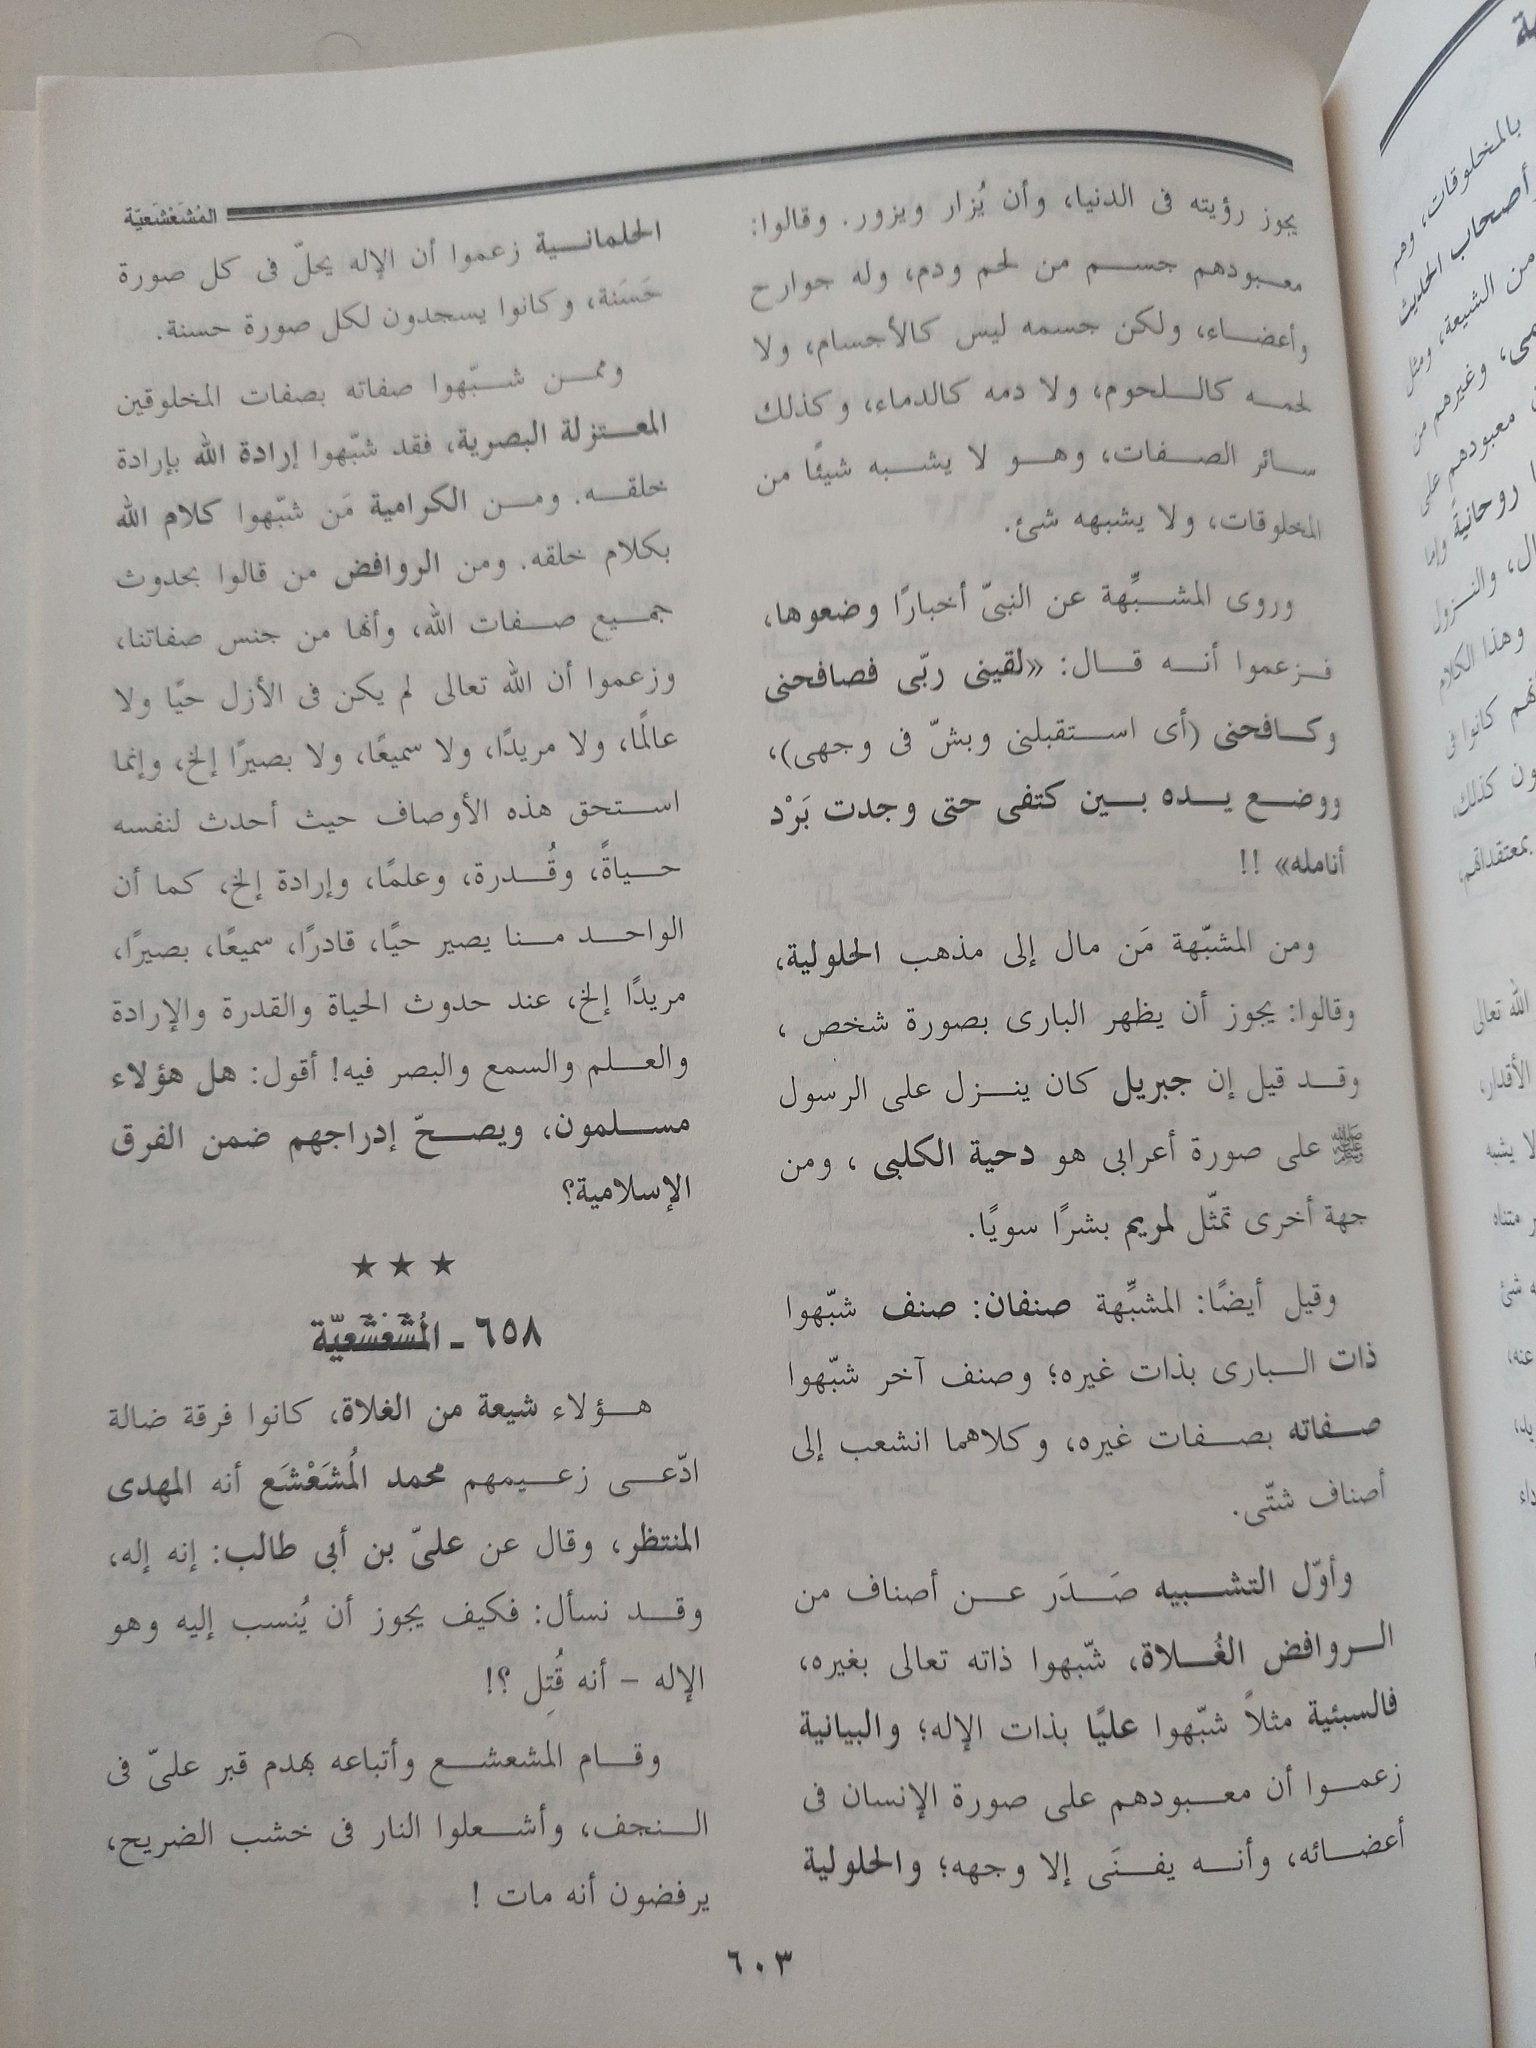 المُشَعْشَعيّة
يجوز رؤيته فى الدنيا، وأن يُزار ويزور. وقالوا:
معبودهم جسم من لحم ودم، وله جوارح
وأعضاء، ولكن جسمه ليس كالأجسام، ولا
لحمه كاللحوم، ولا دمه كالدماء، وكذلك
سائر الصفات، وهو لا يشبه شيئًا من
المخلوقات، ولا يشبهه شئ.
وروى المشبِّهة عن النبىّ أخبارًا وضعوها،
فزعموا أنه قال: «لقينى ربّى فصافحنى
وكافحنى (أى استقبلنى وبشّ فى وجهى)،
ووضع يده بين كتفى حتى وجدت بَرْد
أنامله» !!
ومن المشبّهة مَن مال إلى مذهب الحلولية،
وقالوا: يجوز أن يظهر البارى بصورة شخص ،
وقد قيل إن جبريل كان ينزل على الرسول
ﷺ على صورة أعرابى هو دحية الكلبى ، ومن
جهة أخرى تمثّل لمريم بشرًا سويًا.
وقيل أيضًا: المشبِّهة صنفان: صنف شبّهوا
ذات البارى بذات غيره؛ وصنف آخر شبّهوا
صفاته بصفات غيره، وكلاهما انشعب إلى
أصناف شتّى.
وأوّل التشبيه صَدَر عن أصناف من
الروافض الغُلاة، شبّهوا ذاته تعالى بغيره،
فالسبئية مثلاً شبّهوا عليًا بذات الإله؛ والبيانية
زعموا أن معبودهم على صورة الإنسان فى
أعضائه، وأنه يفنَى إلا وجهه؛ والحلولية
الحلمانية زعموا أن الإله يحلّ فى كل صورة
حَسَنة، وكانوا يسجدون لكل صورة حسنة.
وممن شبّهوا صفاته بصفات المخلوقين
المعتزلة البصرية، فقد شبّهوا إرادة الله بإرادة
خلقه. ومن الكرامية مَن شبّهوا كلام الله
بكلام خلقه. ومن الروافض من قالوا بحدوث
جميع صفات الله، وأنها من جنس صفاتنا،
وزعموا أن الله تعالى لم يكن فى الأزل حيًا ولا
عالمًا، ولا مريدًا، ولا سميعًا، ولا بصيرًا إلخ، وإنما
استحق هذه الأوصاف حيث أحدث لنفسه
حياةً، وقُدرة، وعلمًا، وإرادة إلخ، كما أن
الواحد منا يصير حيًا، قادرًا، سميعًا، بصيرًا،
مريدًا إلخ، عند حدوث الحياة والقدرة والإرادة
والعلم والسمع والبصر فيه! أقول: هل هؤلاء
مسلمون، ويصحّ إدراجهم ضمن الفرق
الإسلامية؟
★ ★ ★
٦٥٨ ـ المُشَعْشَعيّة
هؤلاء شيعة من الغلاة، كانوا فرقة ضالة
ادّعى زعيمهم محمد المُشَعْشَع أنه المهدى
المنتظر، وقال عن علىّ بن أبى طالب: إنه إله،
وقد نسأل: فكيف يجوز أن يُنسب إليه وهو
الإله – أنه قُتِل ؟!
وقام المشعشع وأتباعه بهدم قبر علىّ فى
النجف، وأشعلوا النار فى خشب الضريح،
يرفضون أنه مات !
٦٠٣
بالمخلوقات، وهم
وأصحاب الحديث
من الشيعة، ومثل
وغيرهم من
معبودهم على
روحانيةً وإما
والنزول
وهذا الكلام
كانوا فى
كذلك،
بمعتقداتهم،
الله تعالى
الأقدار،
لا يشبه
متناه
شئ
عنه،